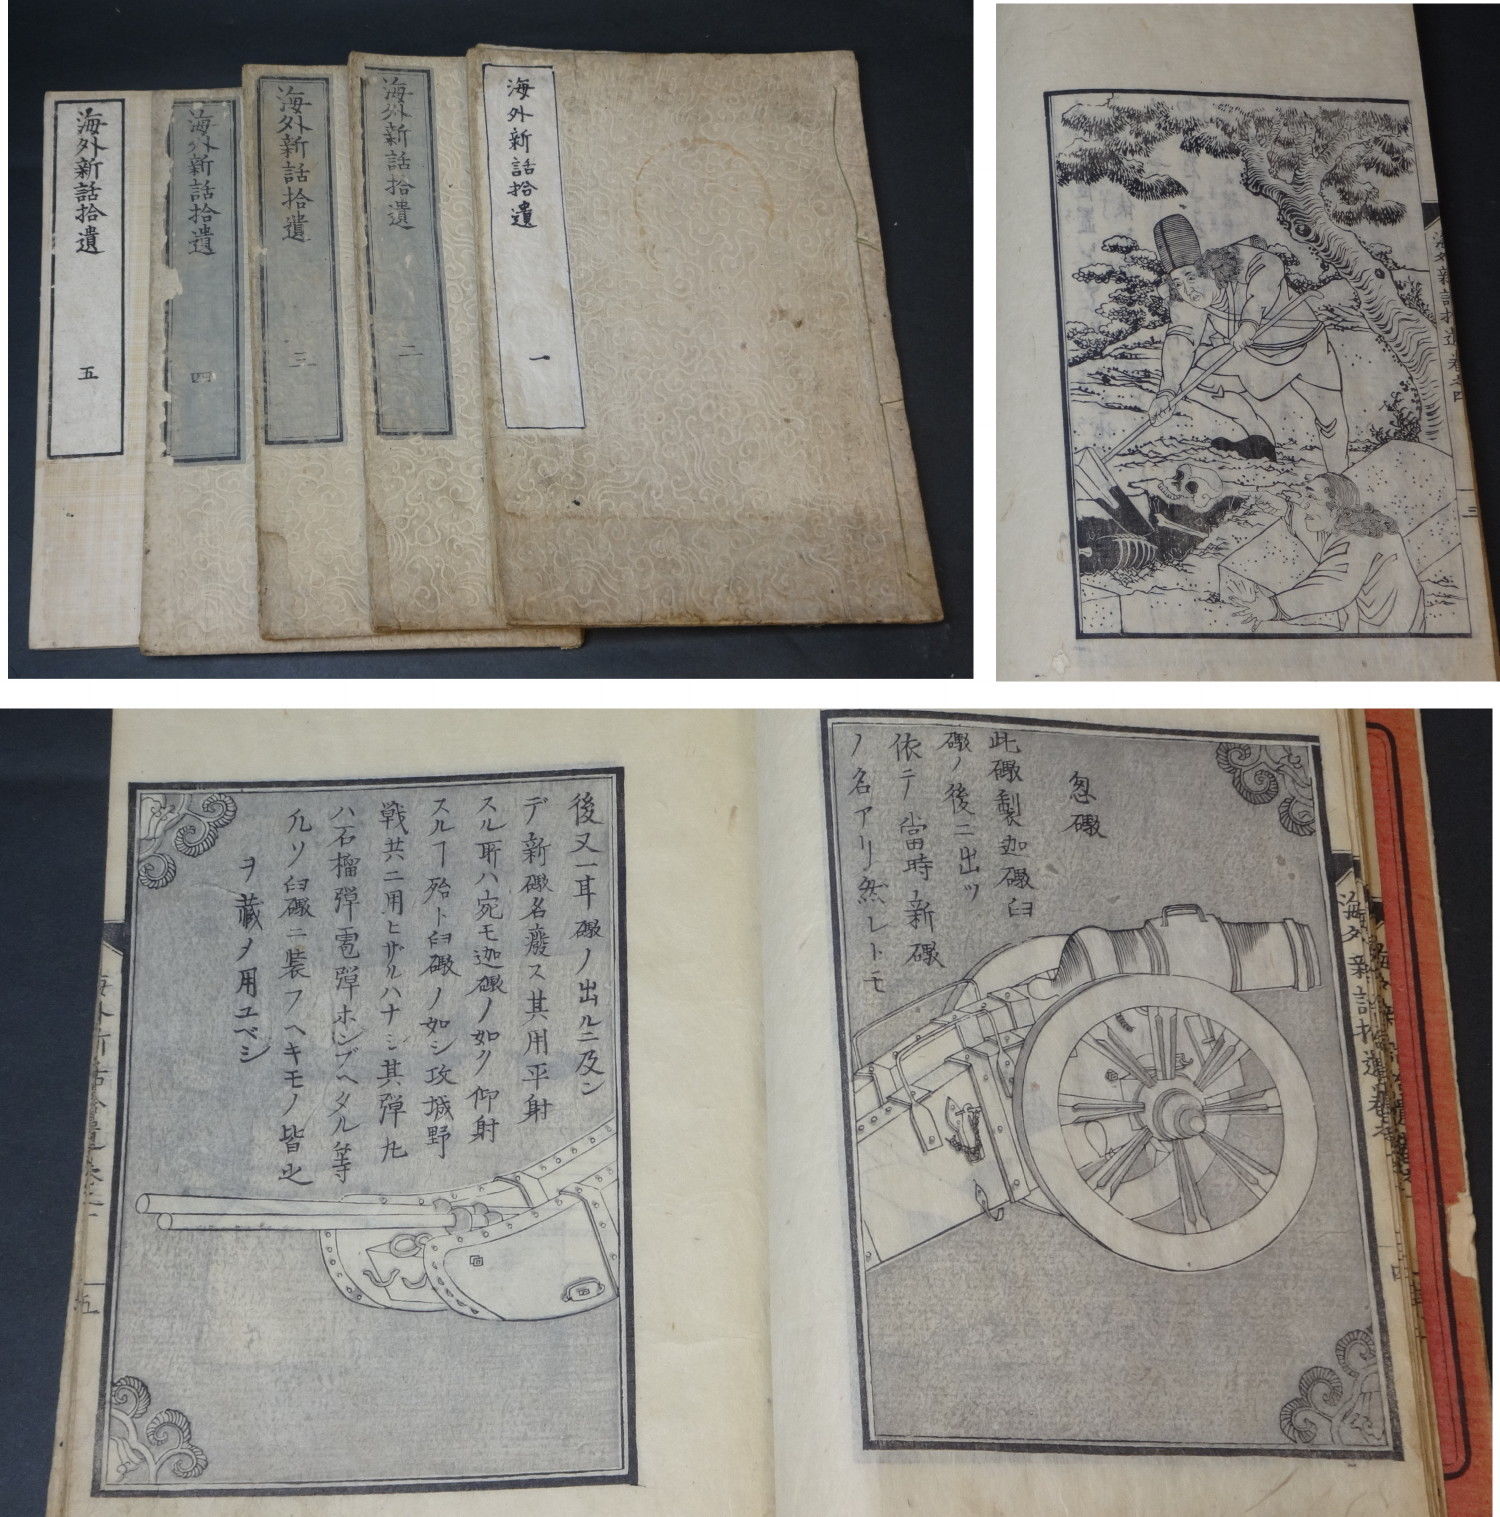 海外新話拾遺 一
海外新話拾遺 二
海外新話拾遺 三
海外新話拾遺 四
海外新話拾遺 五
海外新話拾遺 巻之四
三
忽礮
此礮製迦礮臼
礮ノ後ニ出ツ
依テ當時新礮
ノ名アリ然レトモ
海外新話拾遺巻之
後又一耳礮ノ出ルニ及ン
デ新礮名廢ス其用平射
スル所ハ宛モ迦礮ノ如ク仰射
スルヿ殆ト臼礮ノ如シ攻城野
戰共ニ用ヒザルハナシ其彈丸
ハ石榴彈雹彈ホンブヘタル等
凡ソ臼礮ニ装フヘキモノ皆之
ヲ藏メ用ユベシ
五